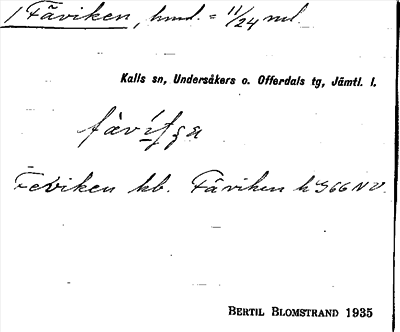 1 Fäviken, hmd. = 11/24 ml.
Kalls sn, Undersåkers o. Offerdals tg, Jämtl. l.
Feviken kb. Fäviken k G66 NV.
BERTIL BLOMSTRAND 1935